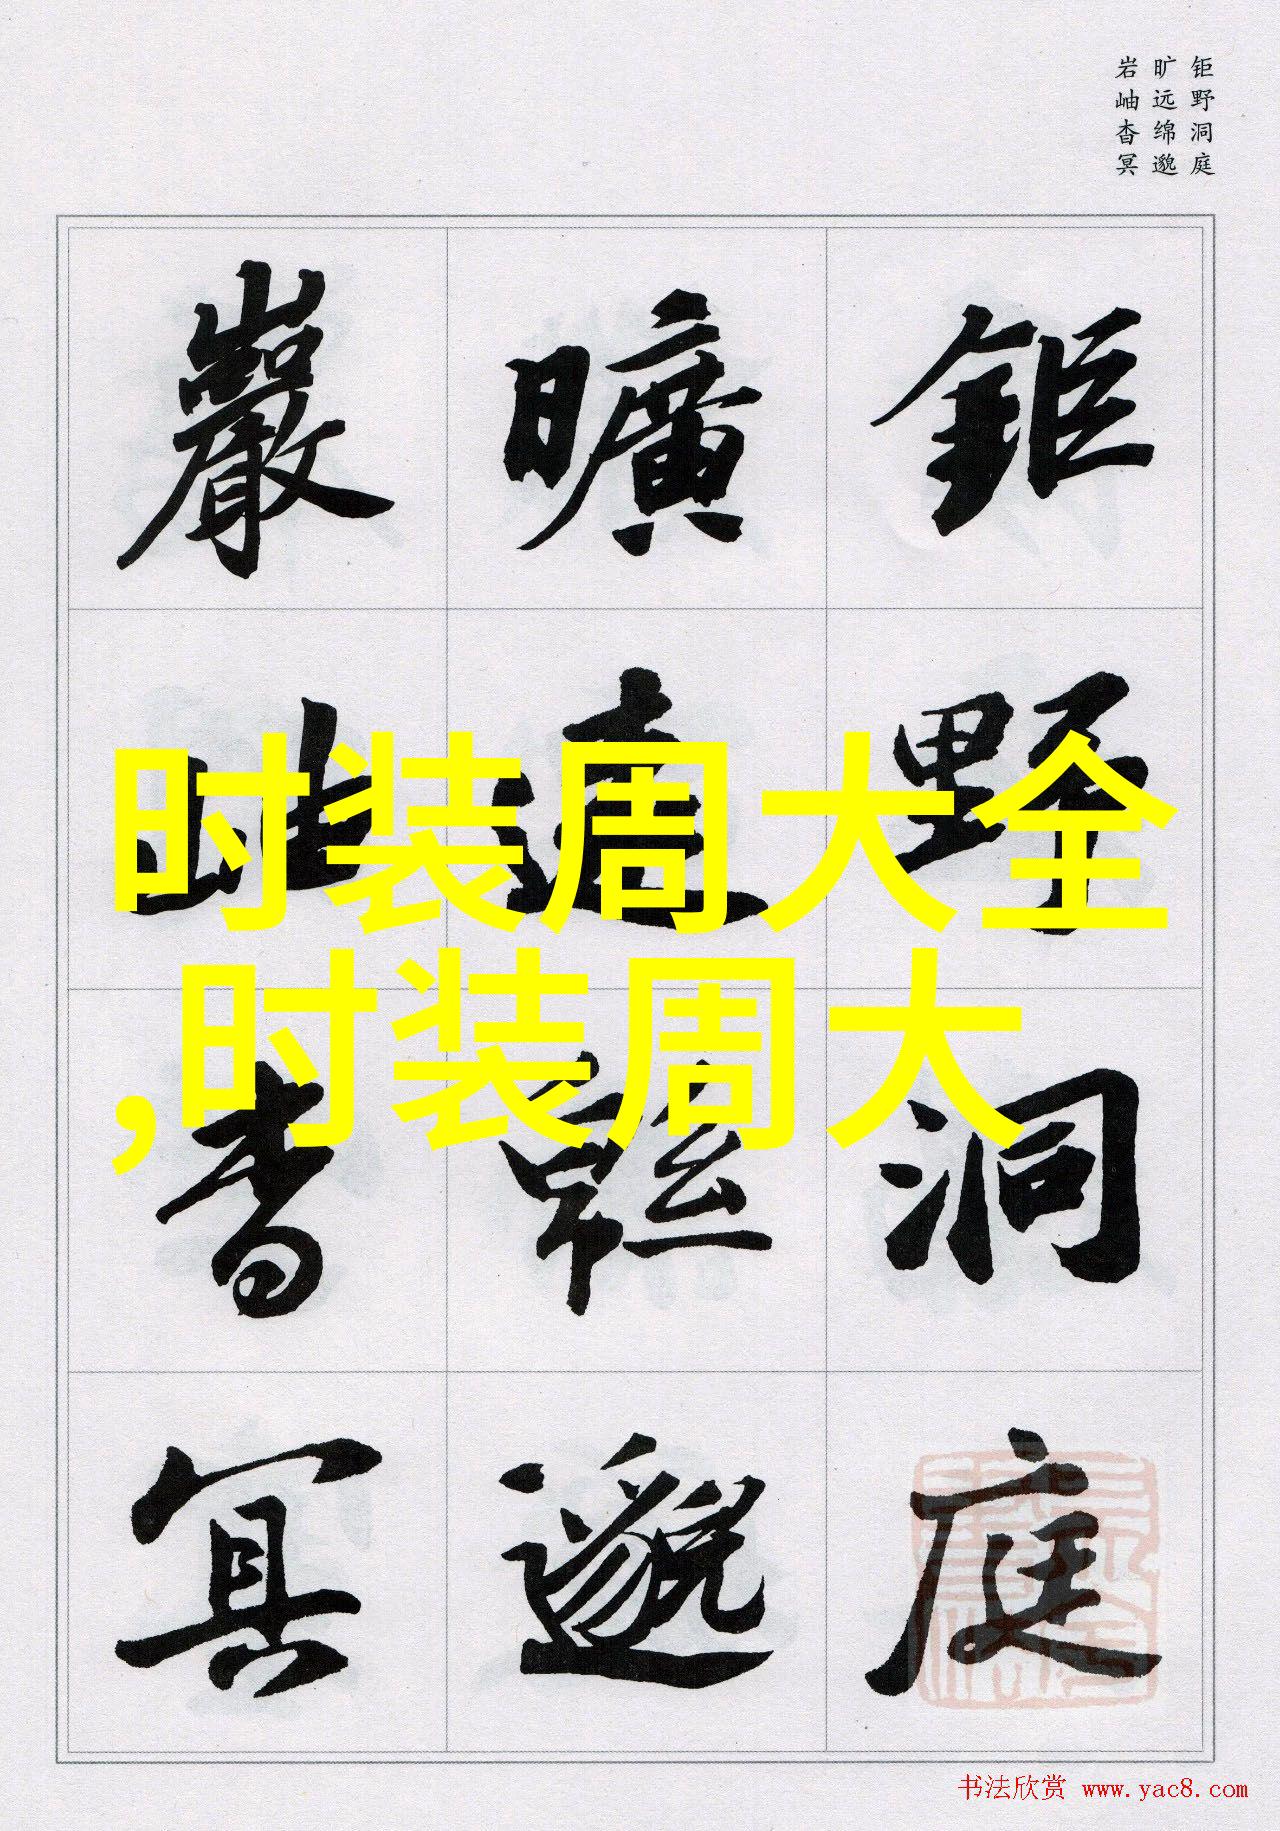 钜野洞庭
旷远绵邈
岩岫杳冥
鉅野洞庭
曠遠緜邈
巖岫杳冥
时装周大全
,时装周大
书法欣赏 www.yac8.com